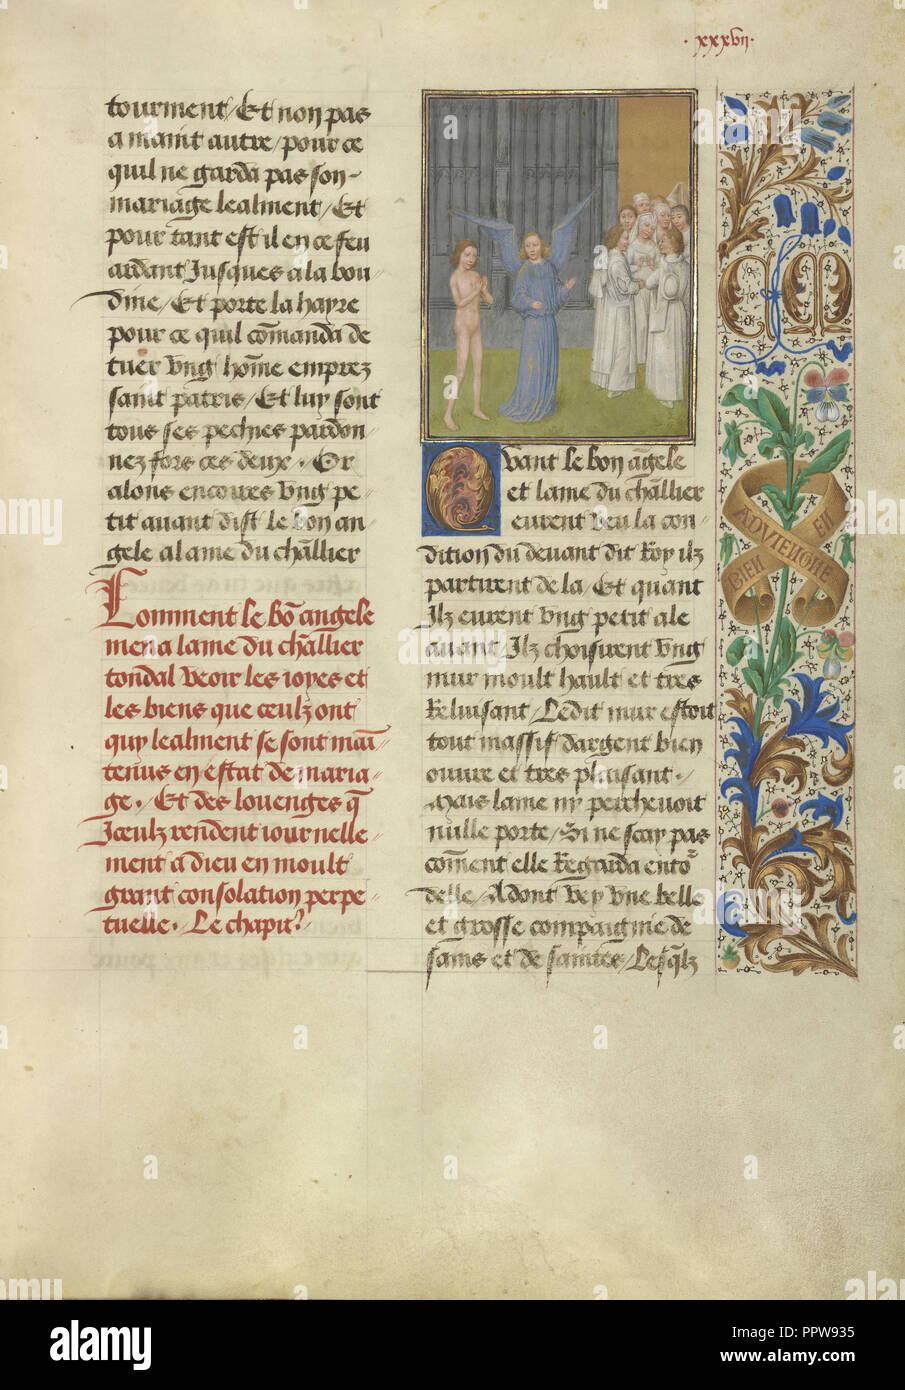 .xxxvii.
tourment / Et non pas
a maint autre / pour ce
quil ne garda pas son
mariage lealment / Et
pour tant est il en ce feu
ardant Jusques a la bou
dine / Et porte la hayre
pour ce quil cōmanda de
tuer vng hōme emprez
saint patris / Et luy sont
tous ses pechies pardon-
nez fors ces deux . Or
alons encores vng pe-
tit auant dist le bon an-
gele a lame du chl̄lier
Comment le bō angele
mena lame du chl̄lier
tondal veoir les ioyes et
les biens que ceulz ont
quy lealment se sont mai
tenus en estat de maria-
ge . Et des louenges q̄
Jceulz rendent iournelle-
ment a dieu en moult
grant consolation perpe-
tuelle . Le chapit̄
Quant le bon āgele
et lame du chl̄lier
eurent veu la con-
dition du deuant dit Roy ilz
partirent de la / Et quant
Ilz eurent vng petit ale
auant Ilz choisirent vng
mur moult hault et tres
Reluisant / Ledit mur estoit
tout massif dargent bien
ouure et tres plaisant .
Mais lame ny percheuoit
nulle porte / Si ne scay pas
cōment elle Regarda ento
delle / Adont vey vne belle
et grosse compaignie de
sains et de saintes / Lesq̄lz
CM
BIEN EN
ADVIENGNE
alamy
Image ID: PPW935
www.alamy.com